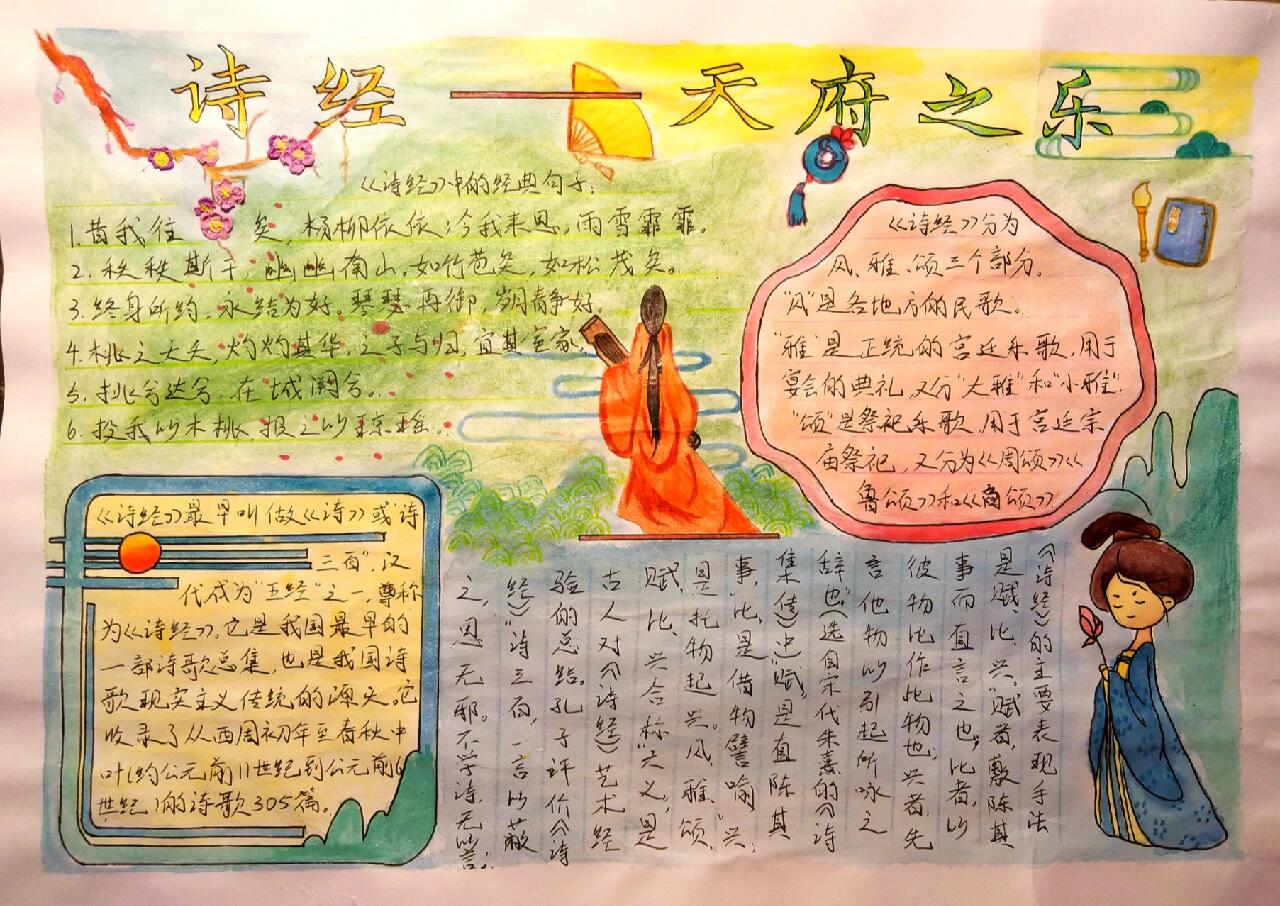 诗经——天府之乐
《诗经》中的经典句子:
1.昔我往 矣,杨柳依依;今我来思,雨雪霏霏。
2.秩秩斯干,幽幽南山,如竹苞矣,如松茂矣。
3.终身所约,永结为好。琴瑟再御,岁月静好。
4.桃之夭夭,灼灼其华,之子与归,宜其室家。
5.挑兮达兮,在城阙兮。
6.投我以木桃,报之以琼瑶。
《诗经》分为
风、雅、颂三个部分。
“风”是各地方的民歌。
“雅”是正统的宫廷乐歌,用于
宴会的典礼,又分“大雅”和“小雅”.
“颂”是祭祀乐歌,用于宫廷宗
庙祭祀,又分为《周颂》《
鲁颂》和《商颂》.
《诗经》最早叫做《诗》或“诗
三百”,汉
代成为“五经”之一,尊称
为《诗经》,它是我国最早的
一部诗歌总集,也是我国诗
歌现实主义传统的源头。它
收录了从西周初年至春秋中
叶(约公元前11世纪到公元前6
世纪)的诗歌305篇。
《诗经》的主要表现手法
是赋、比、兴。“赋者,敷陈其
事而直言之也;比者,以
彼物比作此物也;兴者,先
言他物以引起所咏之
辞也”(选自宋代朱熹的《诗
集传》)中“赋”,是直陈其
事,“比”,是借物譬喻,“兴”,
是托物起兴。风、雅、颂、
赋、比、兴合称“六义”,是
古人对《诗经》艺术经
验的总结。孔子评价《诗
经》“诗三百,一言以蔽
之,思无邪。不学诗,无以言”。